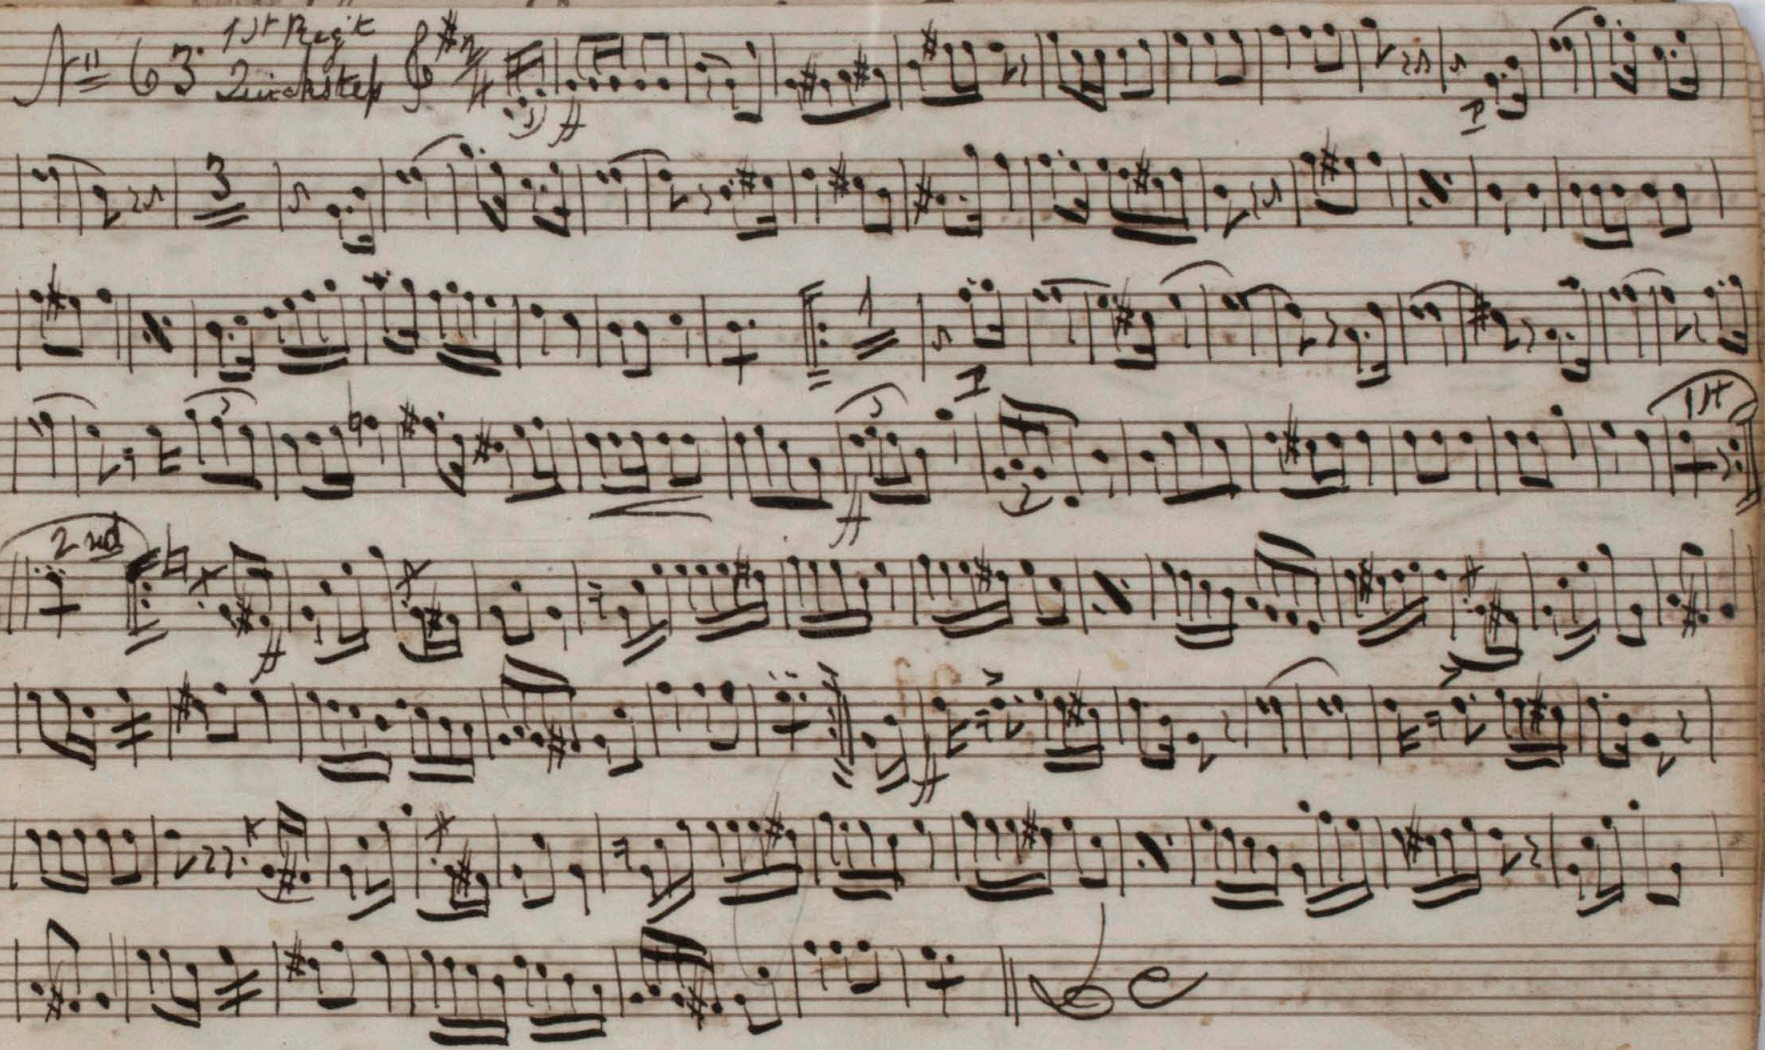 No 63. 1st Regt
Quickstep
3
1
1st
2nd